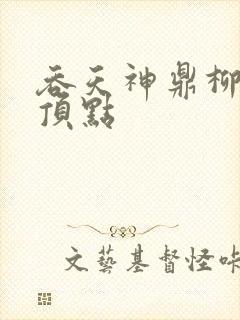 吞天神鼎柳
頂點
文藝基督怪咔